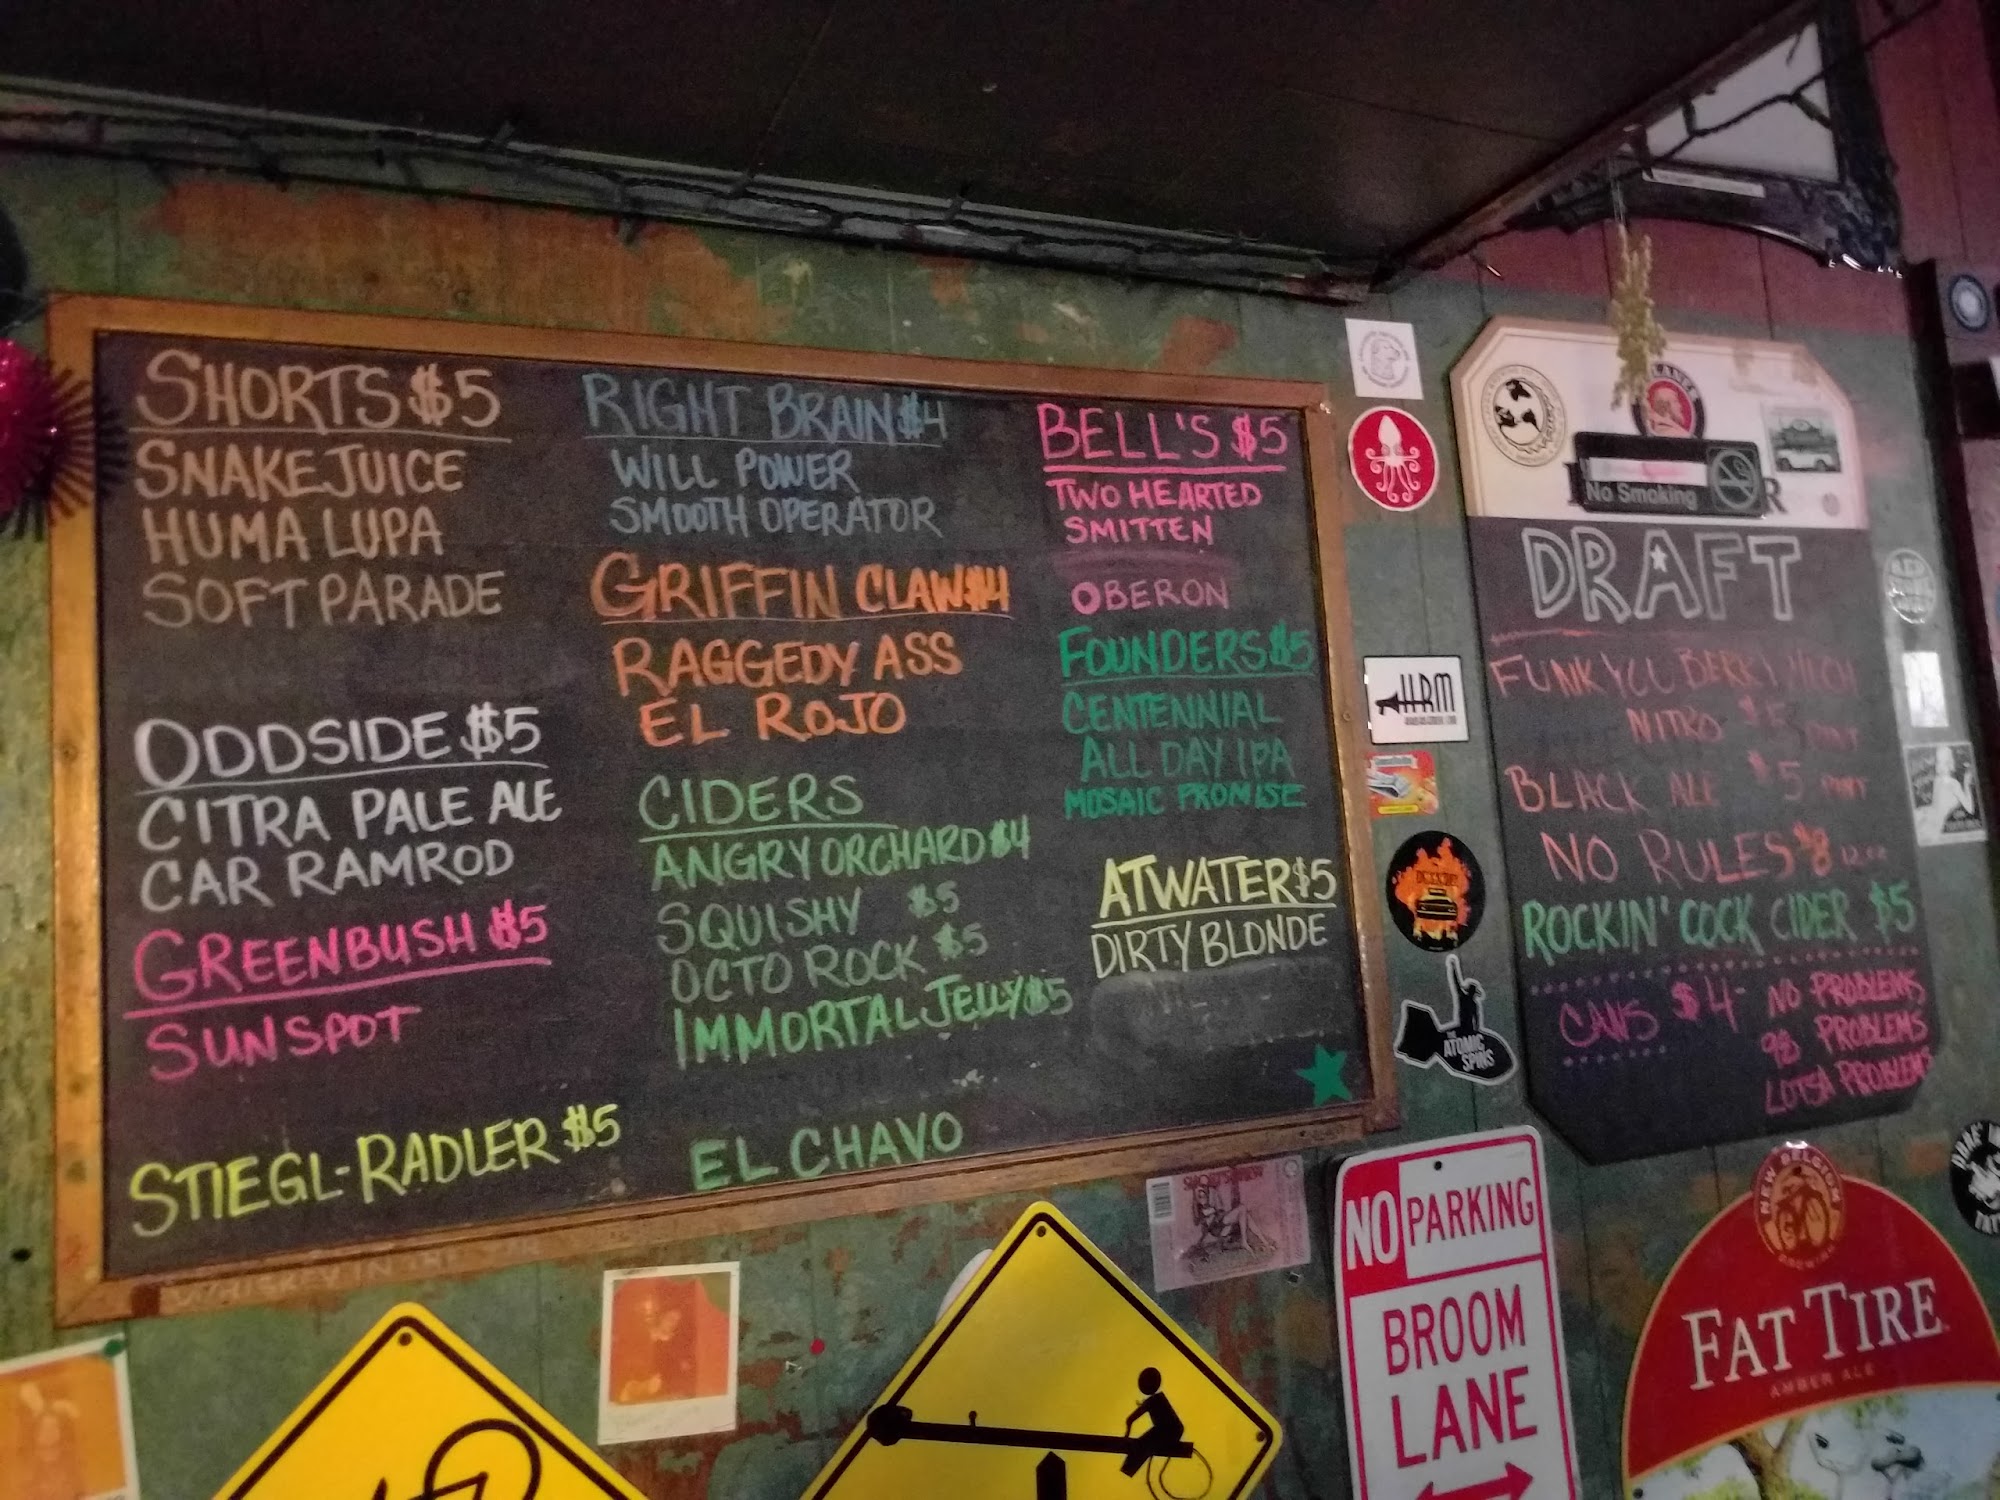 SHORTS $5
SNAKEJUICE
HUMA LUPA
SOFT PARADE
ODDSIDE $5
CITRA PALE ALE
CAR RAMROD
GREENBUSH $5
SUNSPOT
STIEGL-RADLER $5
RIGHT BRAIN $4
WILL POWER
SMOOTH OPERATOR
GRIFFIN CLAW $4
RAGGEDY ASS
EL ROJO
CIDERS
ANGRY ORCHARD $4
SQUISHY $5
OCTO ROCK $5
IMMORTAL JELLY $5
EL CHAVO
BELL'S $5
TWO HEARTED
SMITTEN
OBERON
FOUNDERS $5
CENTENNIAL
ALL DAY IPA
MOSAIC PROMISE
ATWATER $5
DIRTY BLONDE
No Smoking
DRAFT
NITRO $5
BLACK ALE $5
NO RULES $8 12 oz
ROCKIN' COCK CIDER $5
CANS $4- NO PROBLEMS
98 PROBLEMS
LOTSA PROBLEMS
HRM
THE ATOMIC SPINS
WHISKEY IN THE JAR
NO PARKING
BROOM
LANE
NEW BELGIUM
BREWING
FAT TIRE
AMBER ALE